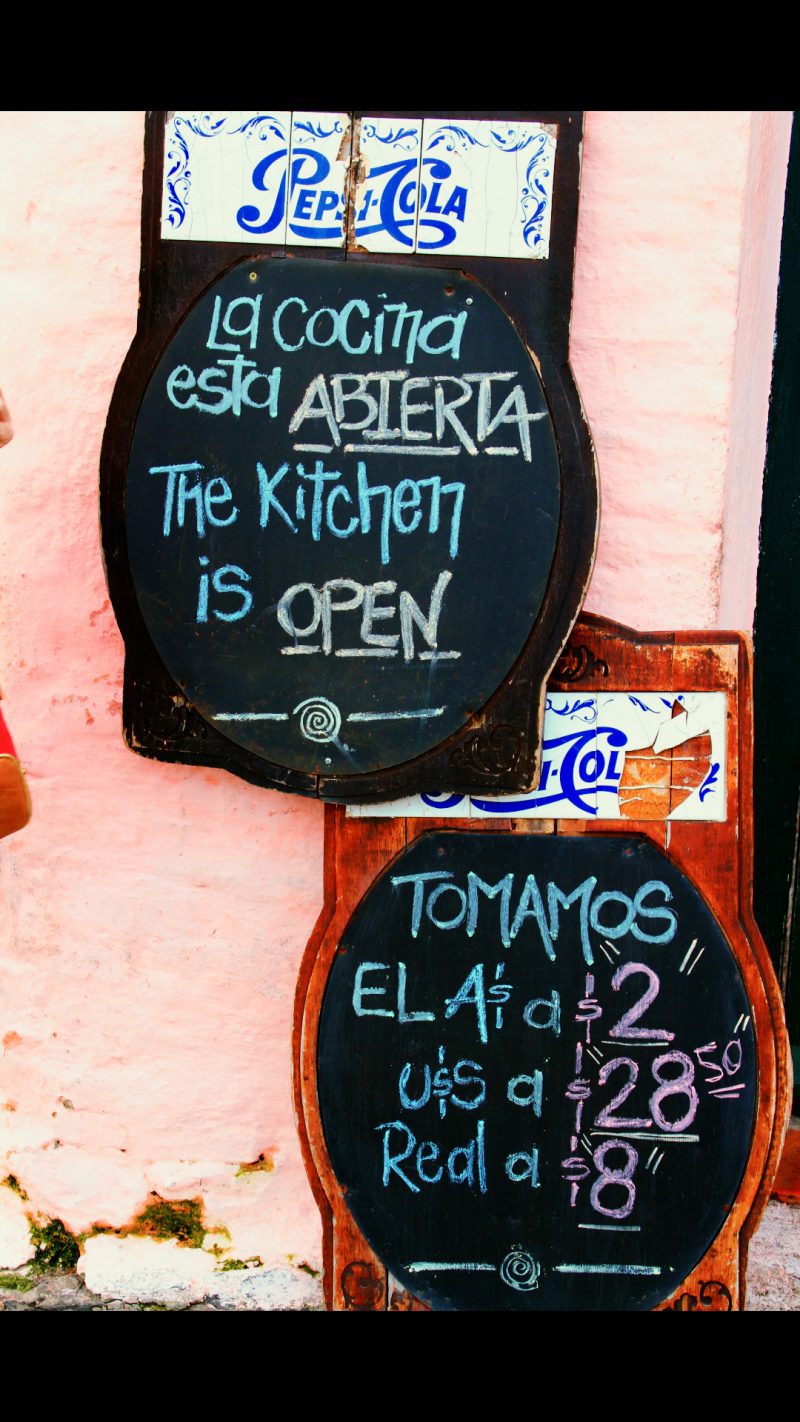 PEPSI-COLA
La cocina
esta ABIERTA
The Kitchen
is OPEN
I-COL
TOMAMOS
EL A$ a $2
U$S a $28 50
Real a $8